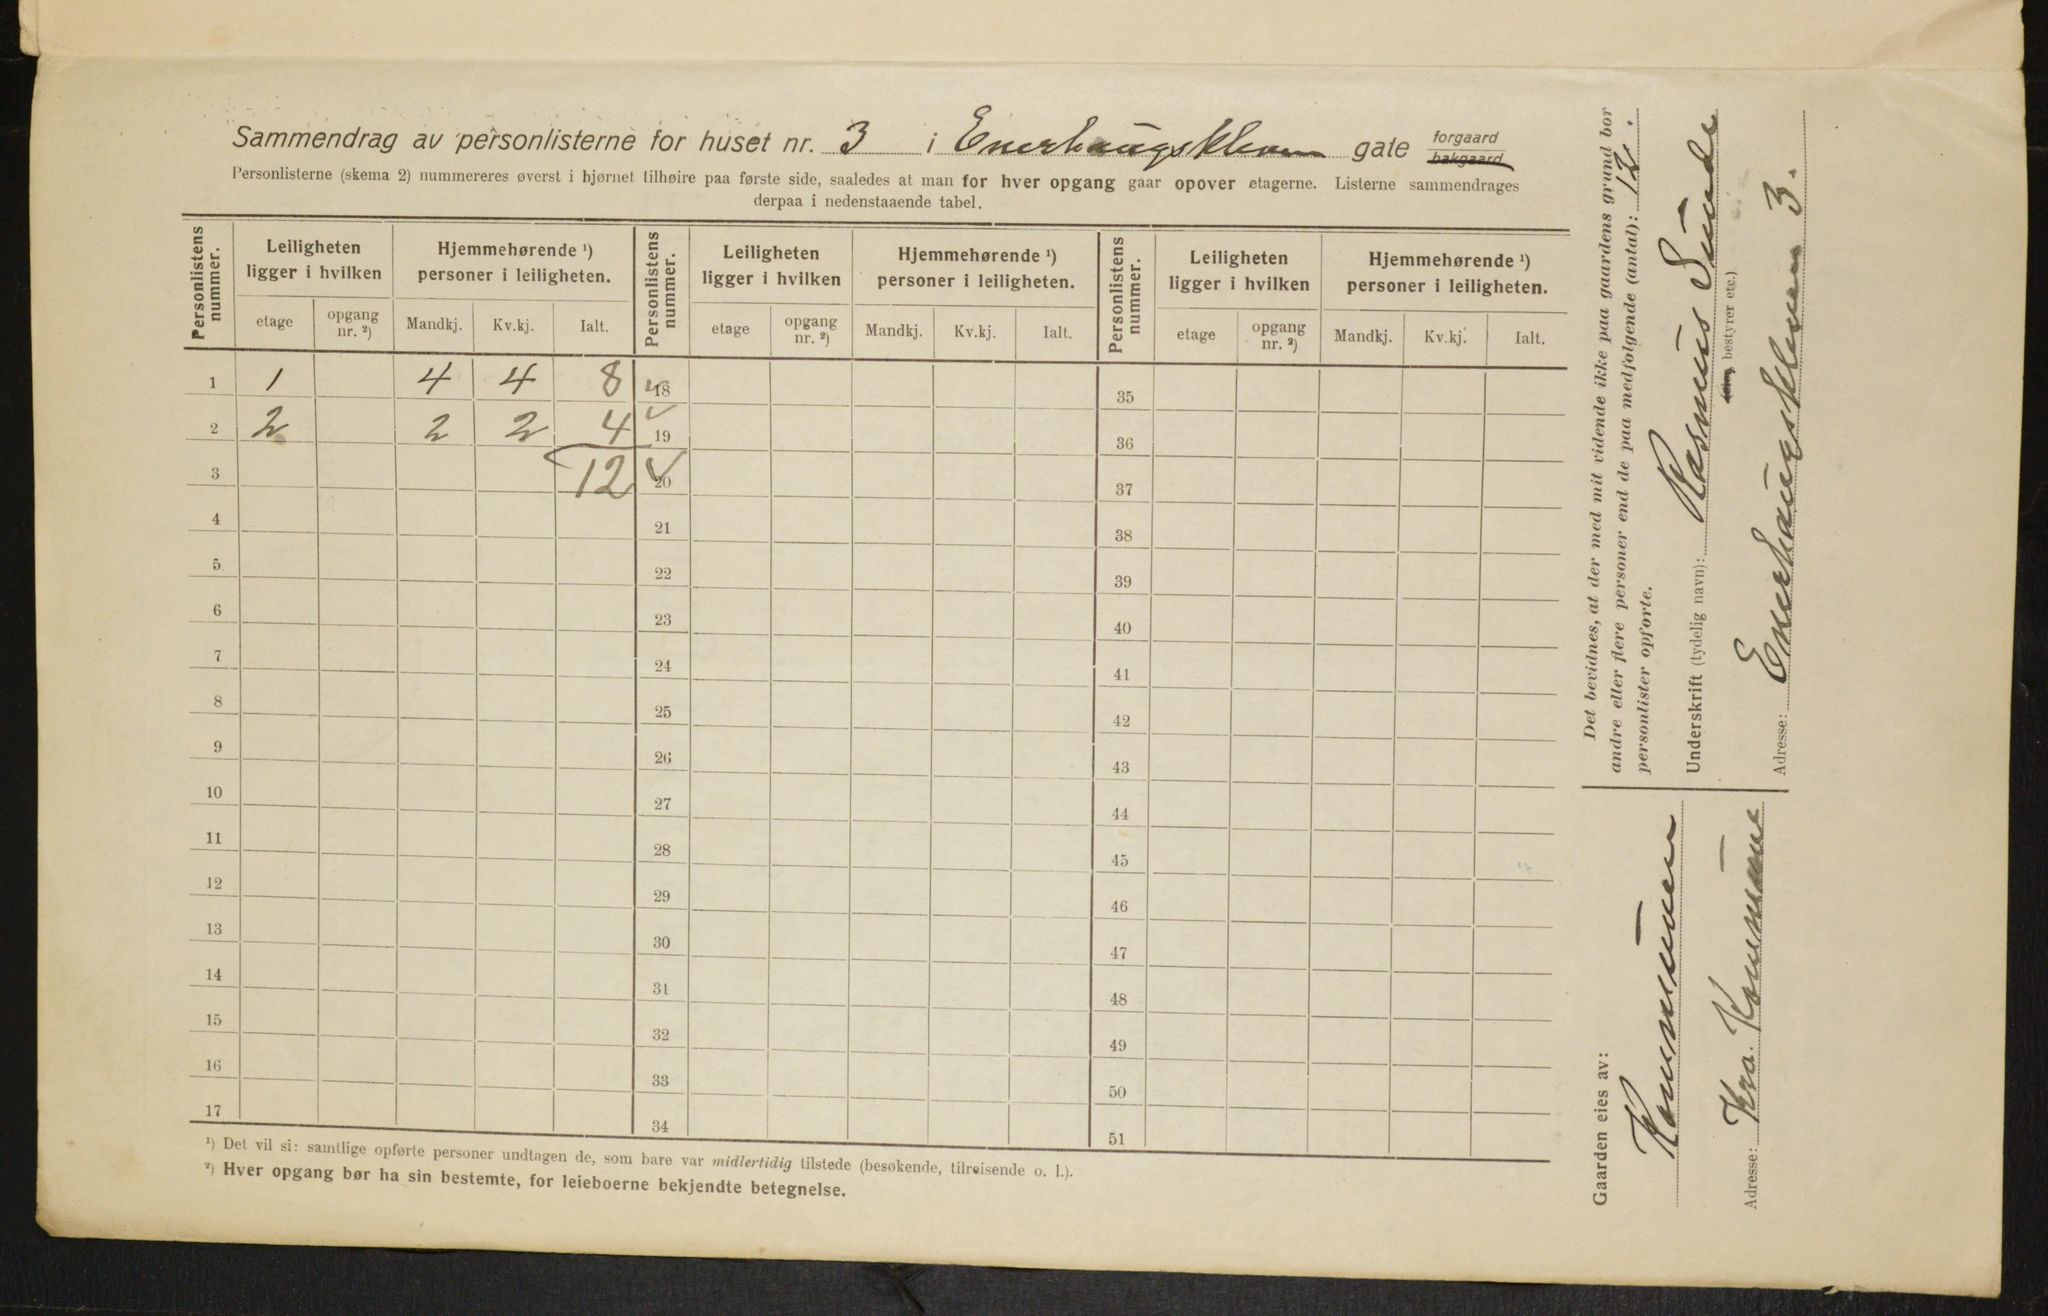 Sammendrag av personlisterne for huset nr. 3 i Enerhaugskleven gate forgaard bakgaard
Personlisterne (skema 2) nummereres øverst i hjørnet tilhøire paa første side, saaledes at man for hver opgang gaar opover etagerne. Listerne sammendrages
derpaa i nedenstaaende tabel.
Personlistens nummer. Leiligheten ligger i hvilken Hjemmehørende ¹) personer i leiligheten. Personlistens nummer. Leiligheten ligger i hvilken Hjemmehørende ¹) personer i leiligheten. Personlistens nummer. Leiligheten ligger i hvilken Hjemmehørende ¹) personer i leiligheten.
etage opgang nr. ²) Mandkj. Kv.kj. Ialt. etage opgang nr. ²) Mandkj. Kv.kj. Ialt. etage opgang nr. ²) Mandkj. Kv.kj. Ialt.
1 1 4 4 8 18 35
2 2 2 2 4 19 36
3 12 20 37
4 21 38
5 22 39
6 23 40
7 24 41
8 25 42
9 26 43
10 27 44
11 28 45
12 29 46
13 30 47
14 31 48
15 32 49
16 33 50
17 34 51
¹) Det vil si: samtlige opførte personer undtagen de, som bare var midlertidig tilstede (besøkende, tilreisende o. l.).
²) Hver opgang bør ha sin bestemte, for leieboerne bekjendte betegnelse.
Det bevidnes, at der med mit vidende ikke paa gaardens grund bor
andre eller flere personer end de paa medfølgende (antal): 12.
personlister opførte.
Underskrift (tydelig navn): Rasmus Sunde
bestyrer etc.)
Adresse: Enerhaugskleven 3.
Gaarden eies av:
Kommunen
Adresse: Kra. Kommune